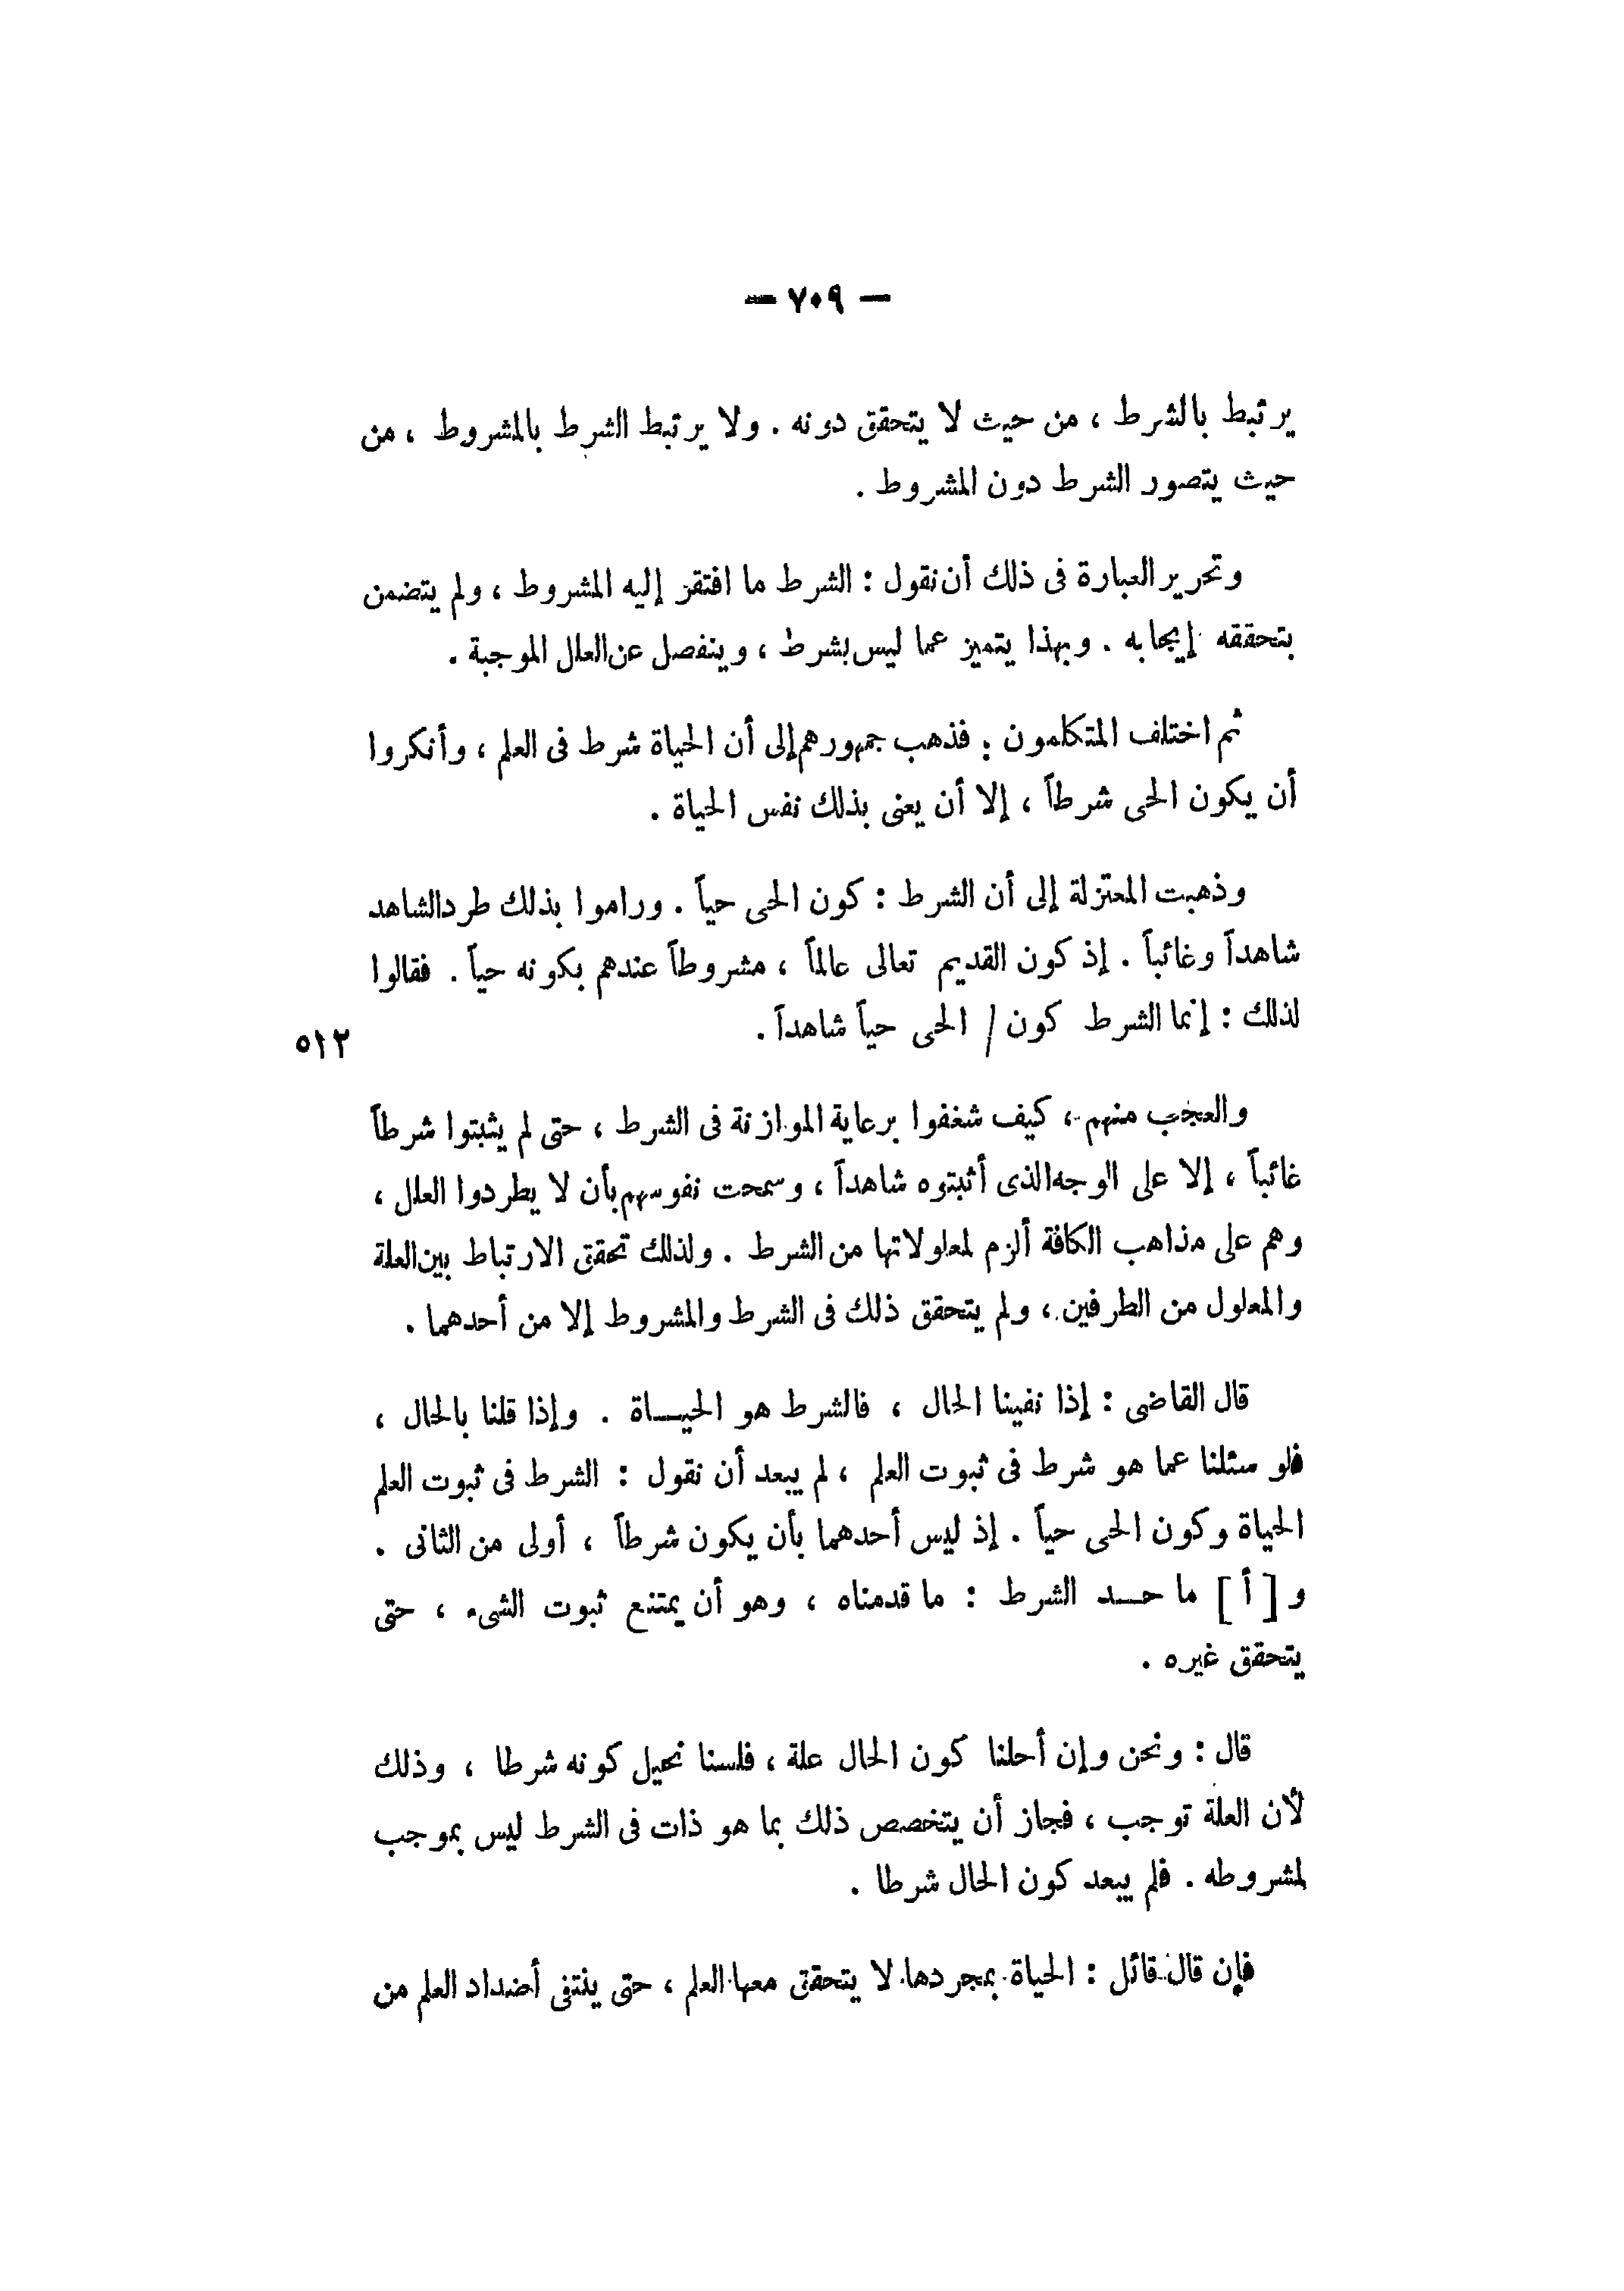 — ٧٠٩ —
يرتبط بالشرط ، من حيث لا يتحقق دونه . ولا يرتبط الشرط بالمشروط ، من
حيث يتصور الشرط دون المشروط .
وتحرير العبارة فى ذلك أن نقول : الشرط ما افتقر إليه المشروط ، ولم يتضمن
بتحققه إيجابه . وبهذا يتميز عما ليس بشرط ، وينفصل عن العلل الموجبة .
ثم اختلف المتكلمون : فذهب جمهورهم إلى أن الحياة شرط فى العلم ، وأنكروا
أن يكون الحى شرطاً ، إلا أن يعنى بذلك نفس الحياة .
وذهبت المعتزلة إلى أن الشرط : كون الحى حياً . وراموا بذلك طرد الشاهد
شاهداً وغائباً . إذ كون القديم تعالى عالماً ، مشروطاً عندهم بكونه حياً . فقالوا
لذلك : إنما الشرط كون / الحى حياً شاهداً .
٥١٢
والعجب منهم ، كيف شغفوا برعاية الموازنة فى الشرط ، حتى لم يثبتوا شرطاً
غائباً ، إلا على الوجه الذى أثبتوه شاهداً ، وسمحت نفوسهم بأن لا يطردوا العلل ،
وهم على مذاهب الكافة ألزم لمعلولاتها من الشرط . ولذلك تحقق الارتباط بين العلة
والمعلول من الطرفين ، ولم يتحقق ذلك فى الشرط والمشروط إلا من أحدهما .
قال القاضى : إذا نفينا الحال ، فالشرط هو الحيــاة . وإذا قلنا بالحال ،
فلو سئلنا عما هو شرط فى ثبوت العلم ، لم يبعد أن نقول : الشرط فى ثبوت العلم
الحياة وكون الحى حياً . إذ ليس أحدهما بأن يكون شرطاً ، أولى من الثانى .
و [ أ ] ما حــد الشرط : ما قدمناه ، وهو أن يمتنع ثبوت الشىء ، حتى
يتحقق غيره .
قال : ونحن وإن أحلنا كون الحال علة ، فلسنا نحيل كونه شرطا ، وذلك
لأن العلة توجب ، فجاز أن يتخصص ذلك بما هو ذات فى الشرط ليس بموجب
لمشروطه . فلم يبعد كون الحال شرطا .
فإن قال قائل : الحياة بمجردها لا يتحقق معها العلم ، حتى ينتفى أضداد العلم من